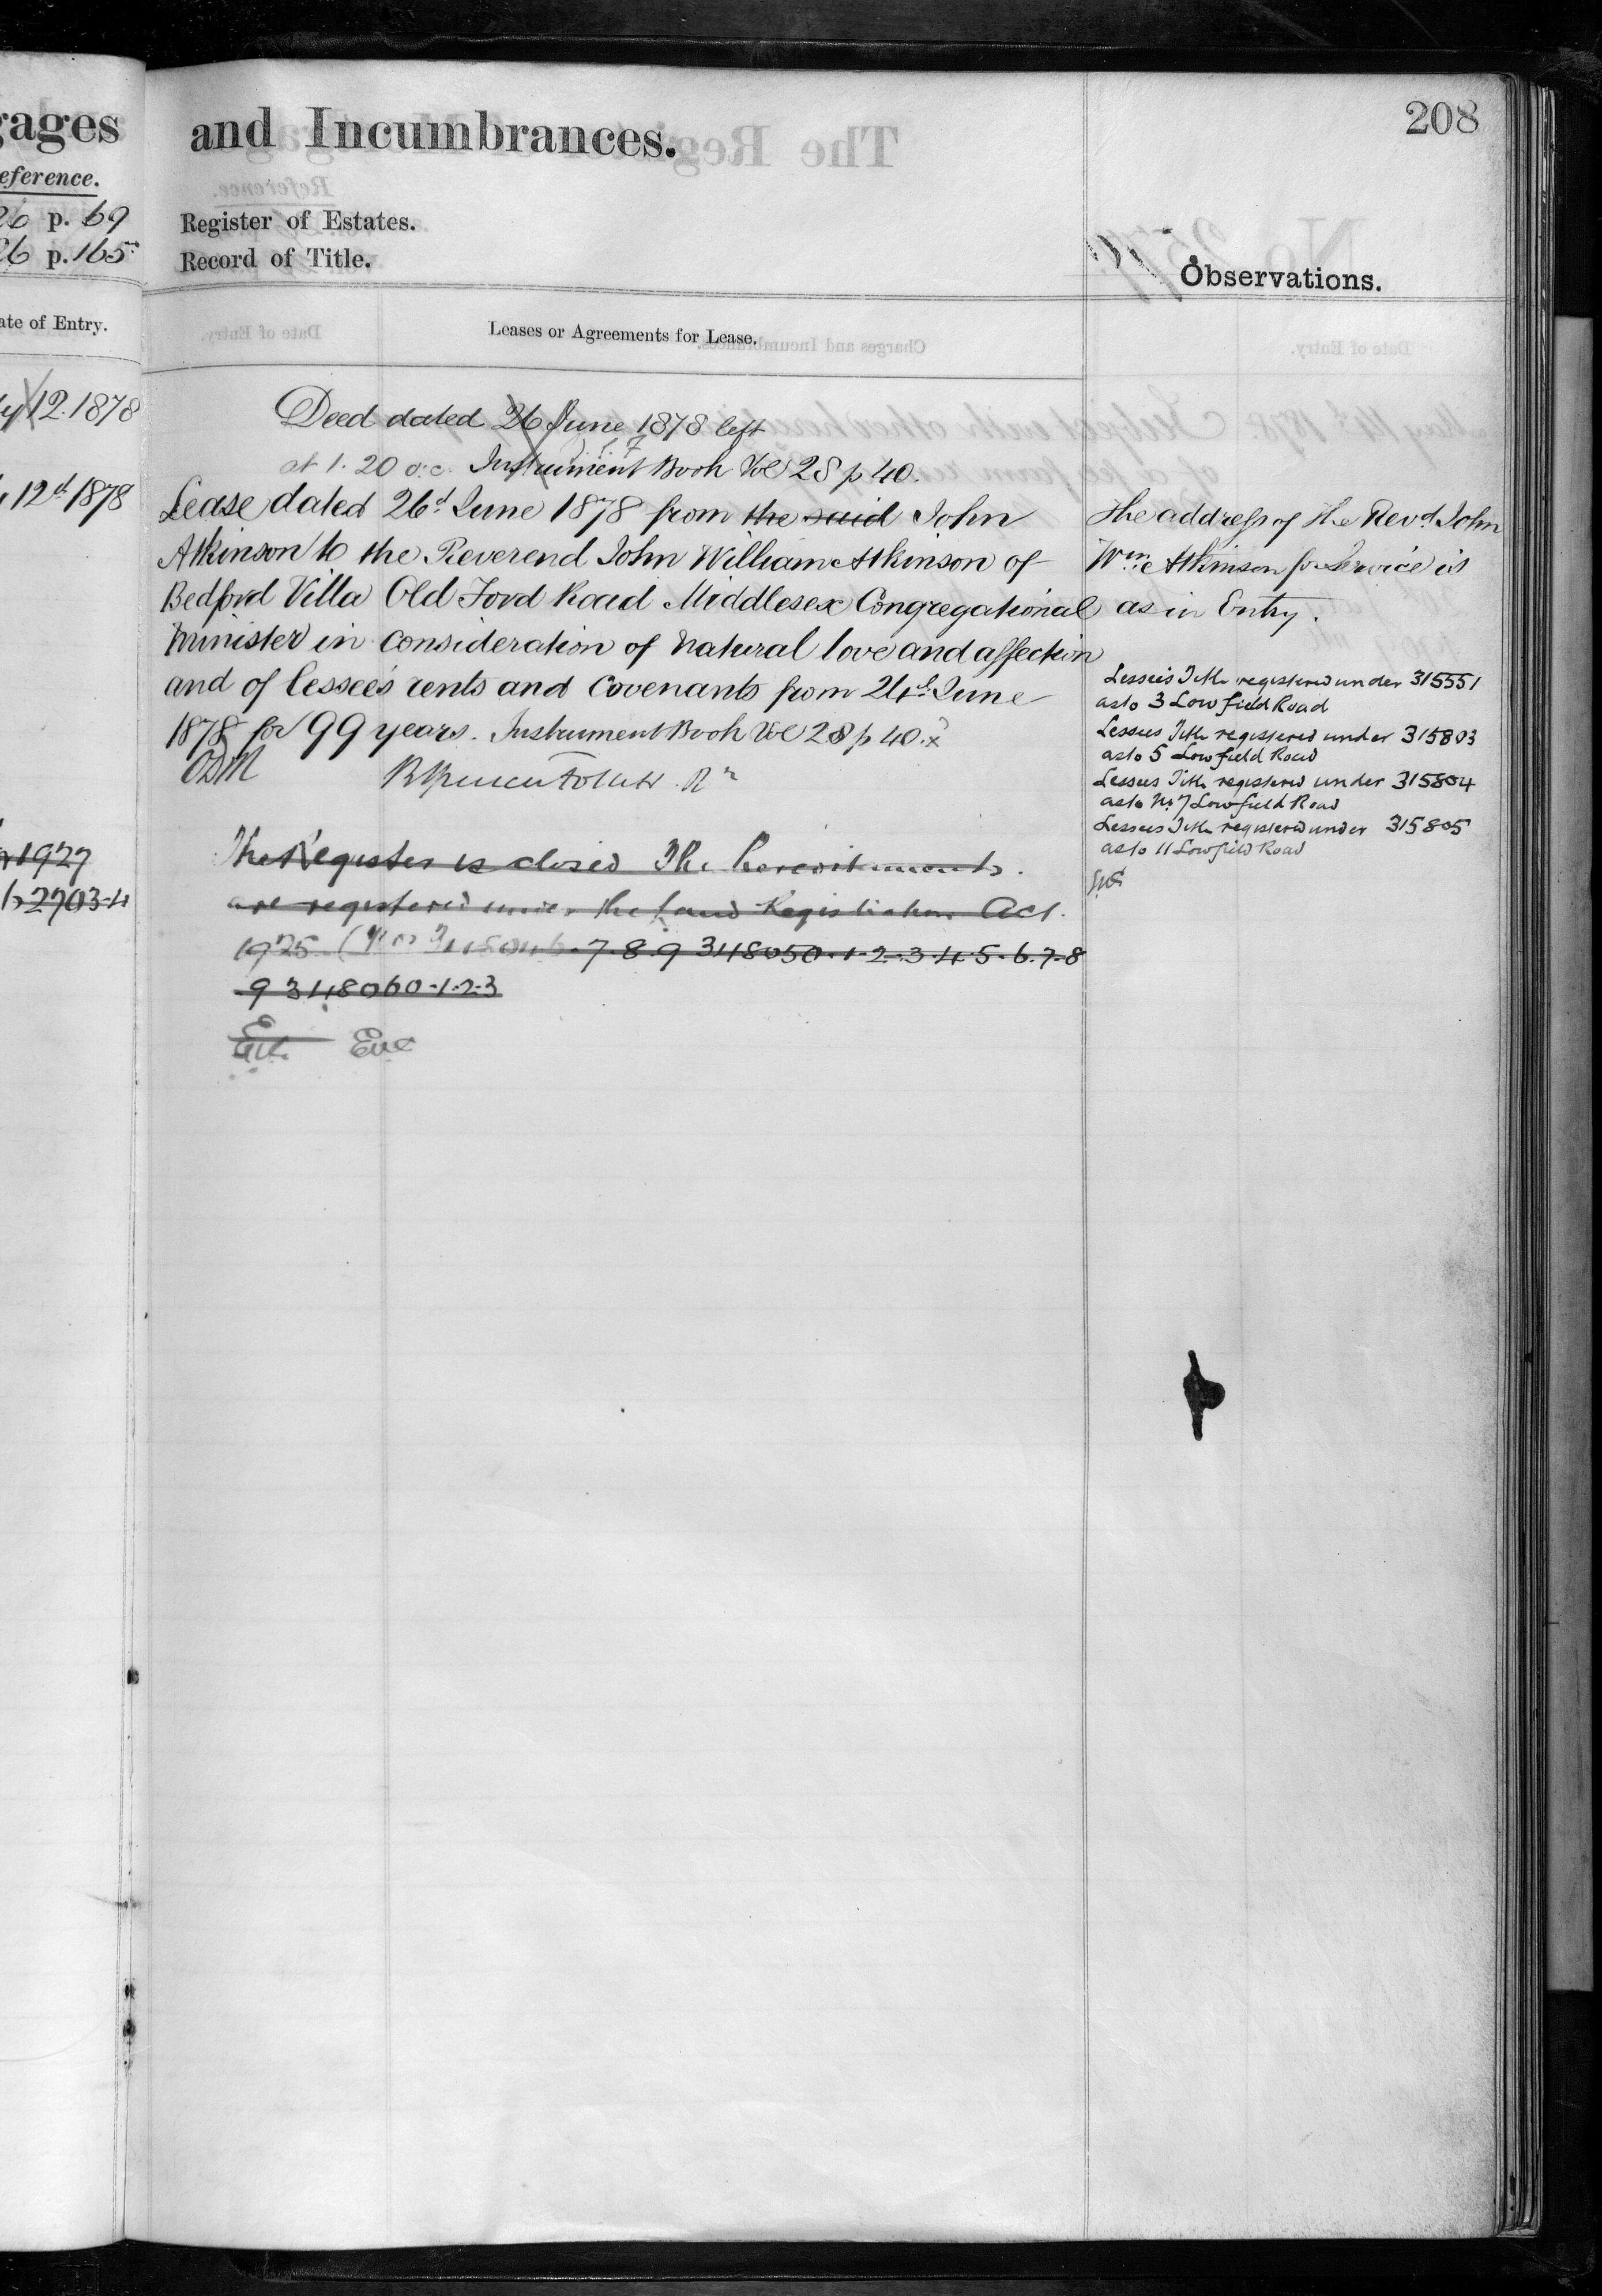 208
gages
and Incumbrances.
eference.
26 p. 69
Register of Estates.
26 p. 165
Record of Title.
Observations.
ate of Entry.
Leases or Agreements for Lease.
12. 1878
Deed dated 26 June 1878 left
at 1.20 o.c. Instrument Book Vol 28 p 40.
12th 1878
Lease dated 26th June 1878 from the said John
Atkinson to the Reverend John William Atkinson of
Bedford Villa Old Ford Road Middlesex Congregational
Minister in consideration of natural love and affection
and of lessee's rents and covenants from 24th June
1878 for 99 years. Instrument Book Vol 28 p 40. x
The address of the Revd John
Wm Atkinson for Service is
as in Entry.
Lessees Title registered under 315551
as to 3 Lowfield Road
Lessees Title registered under 315803
as to 5 Lowfield Road
Lessees Title registered under 315804
as to No 7 Lowfield Road
Lessees Title registered under 315805
as to 11 Lowfield Road
1927
2703-4
The Register is closed The hereditaments
are registered under the Land Registration Act
1925 7-8-9 348050-1-2-3-4-5-6-7-8
9 348060-1-2-3